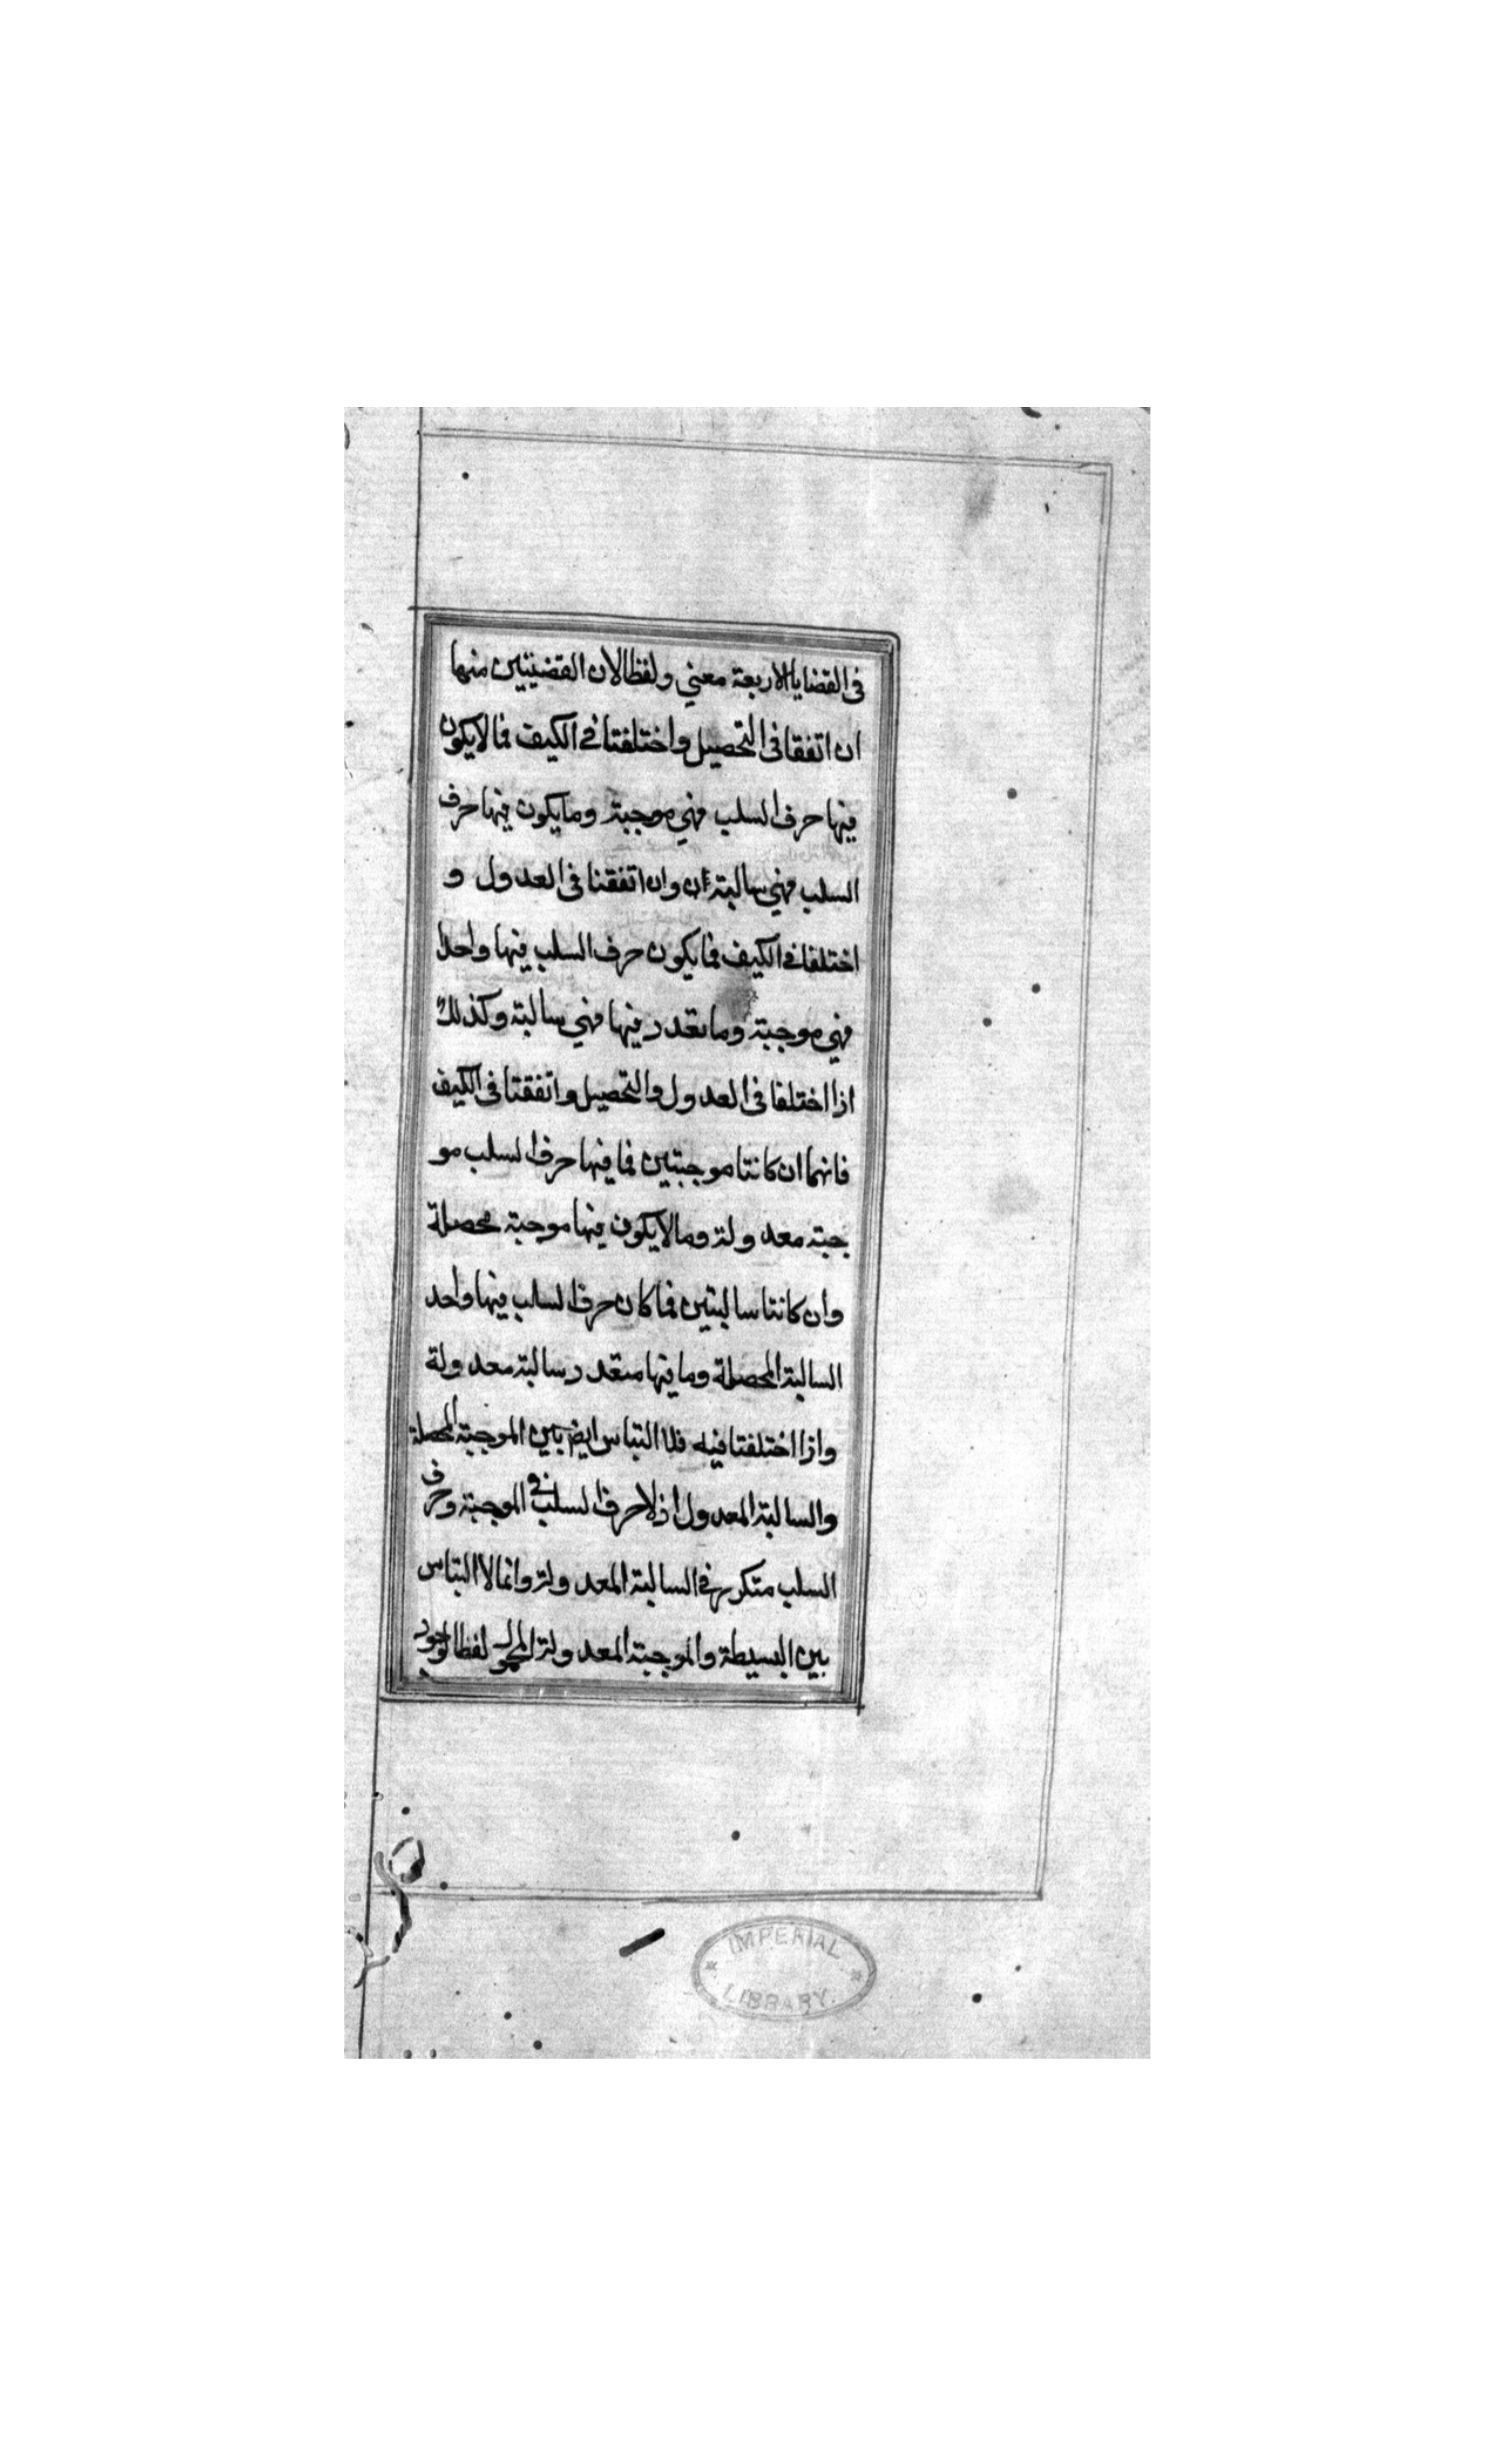 فى القضايا الاربعة معني ولفظا لان القضيتين منها
ان اتفقا فى التحصيل واختلفتا فى الكيف فما لا يكون
فيها حرف السلب فهي موجبة وما يكون فيها حرف
السلب فهي سالبة ان وان اتفقنا فى العدول و
اختلفا فى الكيف فما يكون حرف السلب فيها واحدا
فهي موجبة وما تعدد فيها فهي سالبة وكذلك
اذا اختلفا فى العدول والتحصيل واتفقتا فى الكيف
فانهما ان كانتا موجبتين فما فيها حرف السلب مو
جبة معدولة وما لا يكون فيها موجبة محصلة
وان كانتا سالبتين فما كان حرف السلب فيها واحد
السالبة المحصلة وما فيها متعدد سالبة معدولة
واذا اختلفتا فيه فلا التباس ايض بين الموجبة المحصلة
والسالبة المعدول اذ لا حرف السلب فى الموجبة وحرف
السلب متكرر فى السالبة المعدولة وانما لا التباس
بين البسيطة والموجبة المعدولة المحمول لفظا لوجود
IMPERIAL
LIBRARY